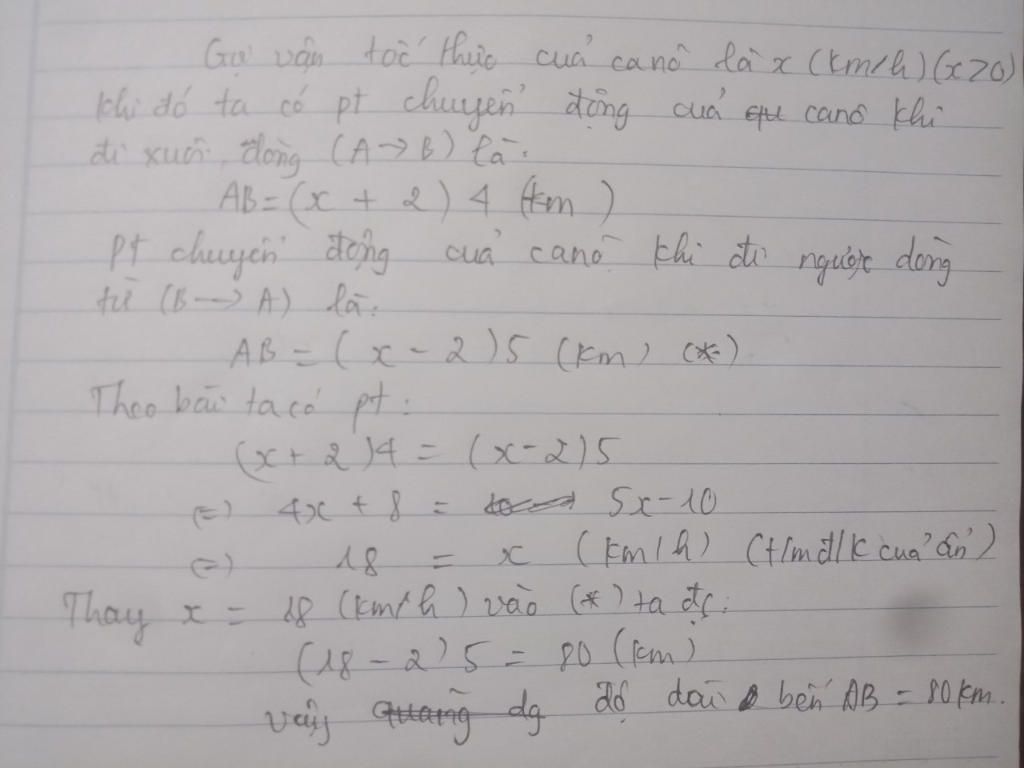 Gọi vận tốc thực của canô là x (km/h) (x>0)
khi đó ta có pt chuyển động của canô khi
đi xuôi dòng (A→B) là:
AB = (x + 2) 4 (km)
pt chuyển động của canô khi đi ngược dòng
từ (B → A) là:
AB = (x - 2) 5 (km) (*)
Theo bài ta có pt:
(x + 2)4 = (x-2)5
(=) 4x + 8 = 5x-10
(=) 18 = x (km/h) (t/m đ/k của ẩn)
Thay x = 18 (km/h) vào (*) ta đc:
(18 - 2) 5 = 80 (km)
vậy độ dài bến AB = 80km.